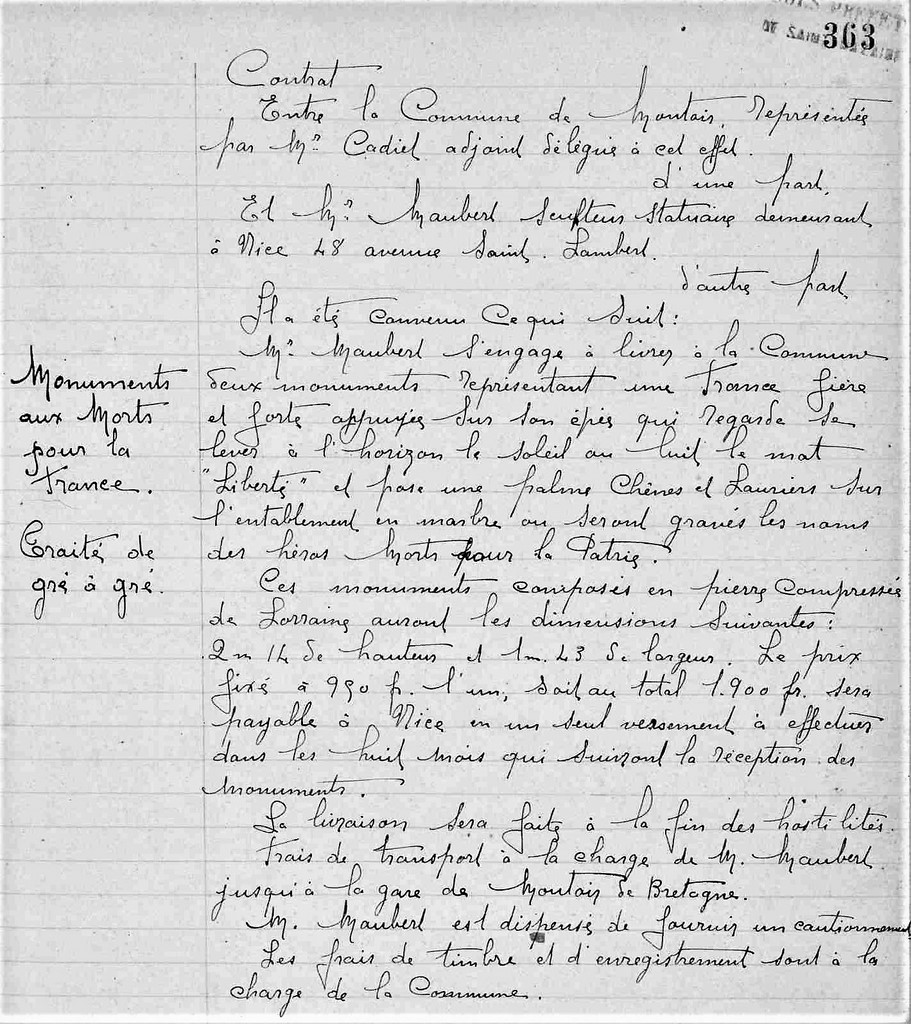 363
Contrat
Entre la Commune de Montoir, représentée
par Mr. Cadiet adjoint délégué à cet effet.
d'une part,
Et Mr. Maubert sculpteur statuaire demeurant
à Nice 48 avenue Saint. Lambert.
d'autre part
Il a été convenu Ce qui suit :
Mr. Maubert s'engage à livrer à la Commune
deux monuments représentant une France fière
et forte appuyée sur son épée qui regarde se
lever à l'horizon le soleil ou luit le mot
"Liberté" et pose une palme Chênes et Lauriers sur
l'entablement en marbre ou seront gravés les noms
des héros Morts pour la Patrie.
Ces monuments composés en pierre Compressée
de Lorraine auront les dimensions suivantes :
2m 14 de hauteur et 1m.43 de largeur. Le prix
fixé à 950 f. l'un, soit au total 1.900 fr. sera
payable à Nice en un seul versement à effectuer
dans les huit mois qui suivront la réception des
monuments.
La livraison sera faite à la fin des hostilités.
Frais de transport à la charge de M. Maubert
jusqu'à la gare de Montoir de Bretagne.
M. Maubert est dispensé de fournir un cautionnement
Les frais de timbre et d'enregistrement sont à la
charge de la Commune.
Monuments
aux Morts
pour la
France.
Traité de
gré à gré.